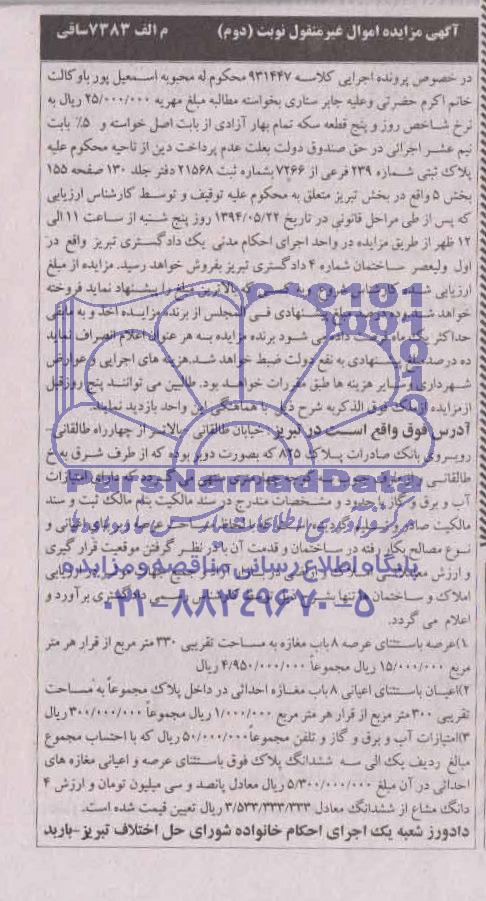 آگهی مزایده اموال غیرمنقول نوبت (دوم) م الف ۷۳۸۳ساقی
در خصوص پرونده اجرایی کلاسه ۹۳۱۴۴۷ محکوم له محبوبه اسمعیل پور باوکالت
خانم اکرم حضرتی وعلیه جابر ستاری بخواسته مطالبه مبلغ مهریه ۲۵/۰۰۰/۰۰۰ ریال به
نرخ شاخص روز و پنج قطعه سکه تمام بهار آزادی از بابت اصل خواسته و ۵٪ بابت
نیم عشر اجرائی در حق صندوق دولت بعلت عدم پرداخت دین از ناحیه محکوم علیه
پلاک ثبتی شماره ۲۳۹ فرعی از ۷۲۶۶ بشماره ثبت ۲۱۵۶۸ دفتر جلد ۱۳۰ صفحه ۱۵۵
بخش ۵ واقع در بخش تبریز متعلق به محکوم علیه توقیف و توسط کارشناس ارزیابی
که پس از طی مراحل قانونی در تاریخ ۱۳۹۴/۰۵/۲۲ روز پنج شنبه از ساعت ۱۱ الی
۱۲ ظهر از طریق مزایده در واحد اجرای احکام مدنی یک دادگستری تبریز واقع در
اول ولیعصر ساختمان شماره ۴ دادگستری تبریز بفروش خواهد رسید. مزایده از مبلغ
ارزیابی شده کارشناس شروع و به کسی که بالاترین مبلغ را پیشنهاد نماید فروخته
خواهد شد وده درصد مبلغ پیشنهادی فی المجلس از برنده مزایده اخذ و به مابقی
حداکثر یک ماه فرصت داده می شود برنده مزایده به هر عنوان اعلام انصراف نماید
ده درصد مبلغ پیشنهادی به نفع دولت ضبط خواهد شد.هزینه های اجرایی و عوارض
شهرداری و سایر هزینه ها طبق مقررات خواهد بود. طالبین می توانند پنج روزقبل
ازمزایده ازملک فوق الذکربه شرح ذیل با هماهنگی این واحد بازدید نمایند.
آدرس فوق واقع است در تبریز- خیابان طالقانی - بالاتر از چهارراه طالقانی-
روبسروی بانک صادرات پلاک ۸۲۵ که بصورت دوبر بوده که از طرف شرق به خ
طالقانی و از طرف جنوب به کوچه چهارمتری منتهی می گردد که دارای امتیازات
آب و برق و گاز با حدود و مشخصات مندرج در سند مالکیت بنام مالک ثبت و سند
مالکیت صادر و تسلیم گردیده است
نوع مصالح بکار رفته در ساختمان و قدمت آن بادر نظر گرفتن موقعیت قرار گیری
املاک و ساختمان
اعلام می گردد.
۱)عرصه باستثنای عرصه ۸ باب مغازه به مساحت تقریبی ۳۳۰ متر مربع از قرار هر متر
مربع ۱۵/۰۰۰/۰۰۰ ریال مجموعاً ۴/۹۵۰/۰۰۰/۰۰۰ ریال
۲)اعیان باستثنای اعیانی ۸ باب مغازه احداثی در داخل پلاک مجموعاً به مساحت
تقریبی ۳۰۰ متر مربع از قرار هر متر مربع ۱/۰۰۰/۰۰۰ ریال مجموعاً ۳۰۰/۰۰۰/۰۰۰ ریال
۳)امتیازات آب و برق و گاز و تلفن مجموعاً ۵۰/۰۰۰/۰۰۰ ریال که با احتساب مجموع
مبالغ ردیف یک الی سه ششدانگ پلاک فوق باستثنای عرصه و اعیانی مغازه های
احداثی در آن مبلغ ۵/۳۰۰/۰۰۰/۰۰۰ ریال معادل پانصد و سی میلیون تومان و ارزش ۴
دانگ مشاع از ششدانگ معادل ۳/۵۳۳/۳۳۳/۳۳۳ ریال تعیین قیمت شده است.
دادورز شعبه یک اجرای احکام خانواده شورای حل اختلاف تبریز-باربد
ParsNamadData
پایگاه اطلاع رسانی مناقصه و مزایده
۰۲۱-۸۸۳۴۹۶۷۰-۵